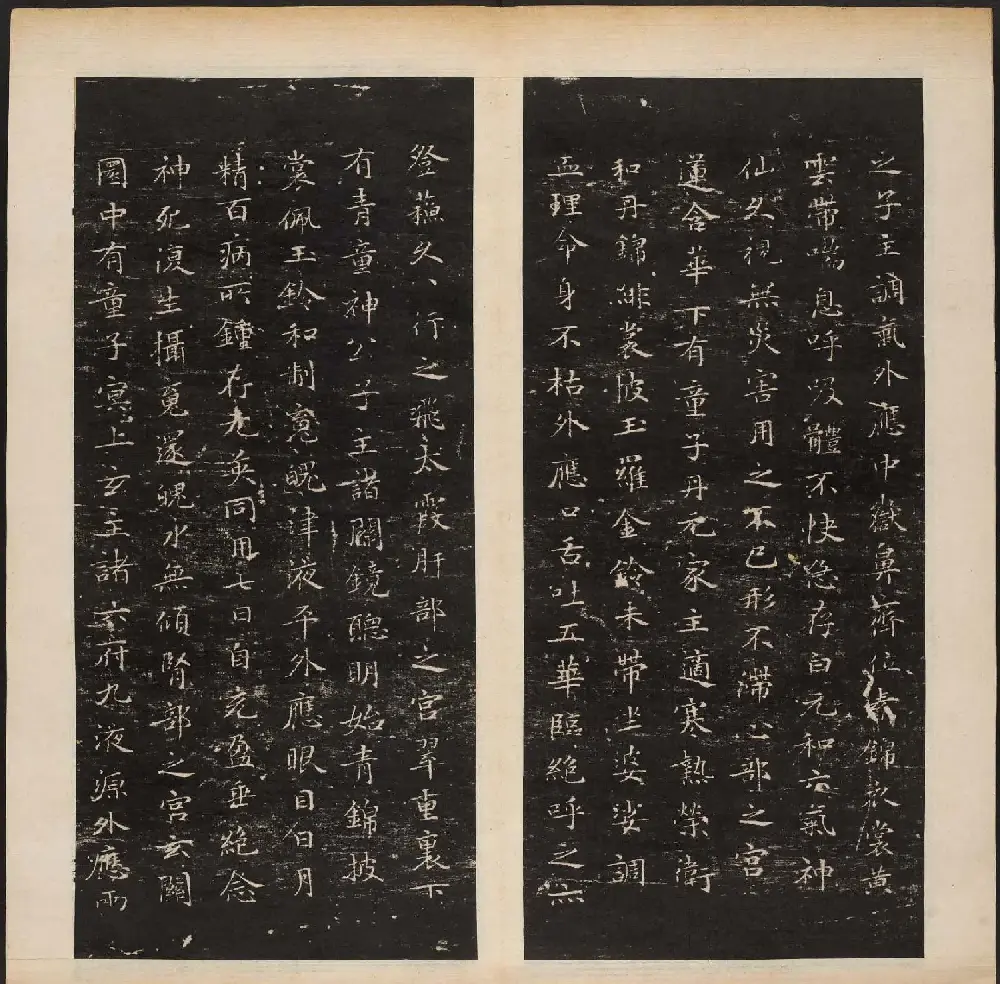 之子主調氣外應中嶽鼻齊位素錦衣裳黃
雲帶喘息呼吸體不快急存白元和六氣神
仙久視無災害用之不已形不滯心部之宮
蓮含華下有童子丹元家主適寒熱榮衛
和丹錦緋裳披玉羅金鈴朱帶坐婆娑調
血理命身不枯外應口舌吐五華臨絕呼之亦
登蘇久久行之飛太霞肝部之宮翠重裏下
有青童神公子主諸關鏡聰明始青錦披
裳佩玉鈴和制魂魄津液平外應眼目日月
精百病所鍾存无英同用七日自充盈垂絕念
神死復生攝魂還魄永無傾腎部之宮玄闕
圓中有童子冥上玄主諸六府九液源外應兩